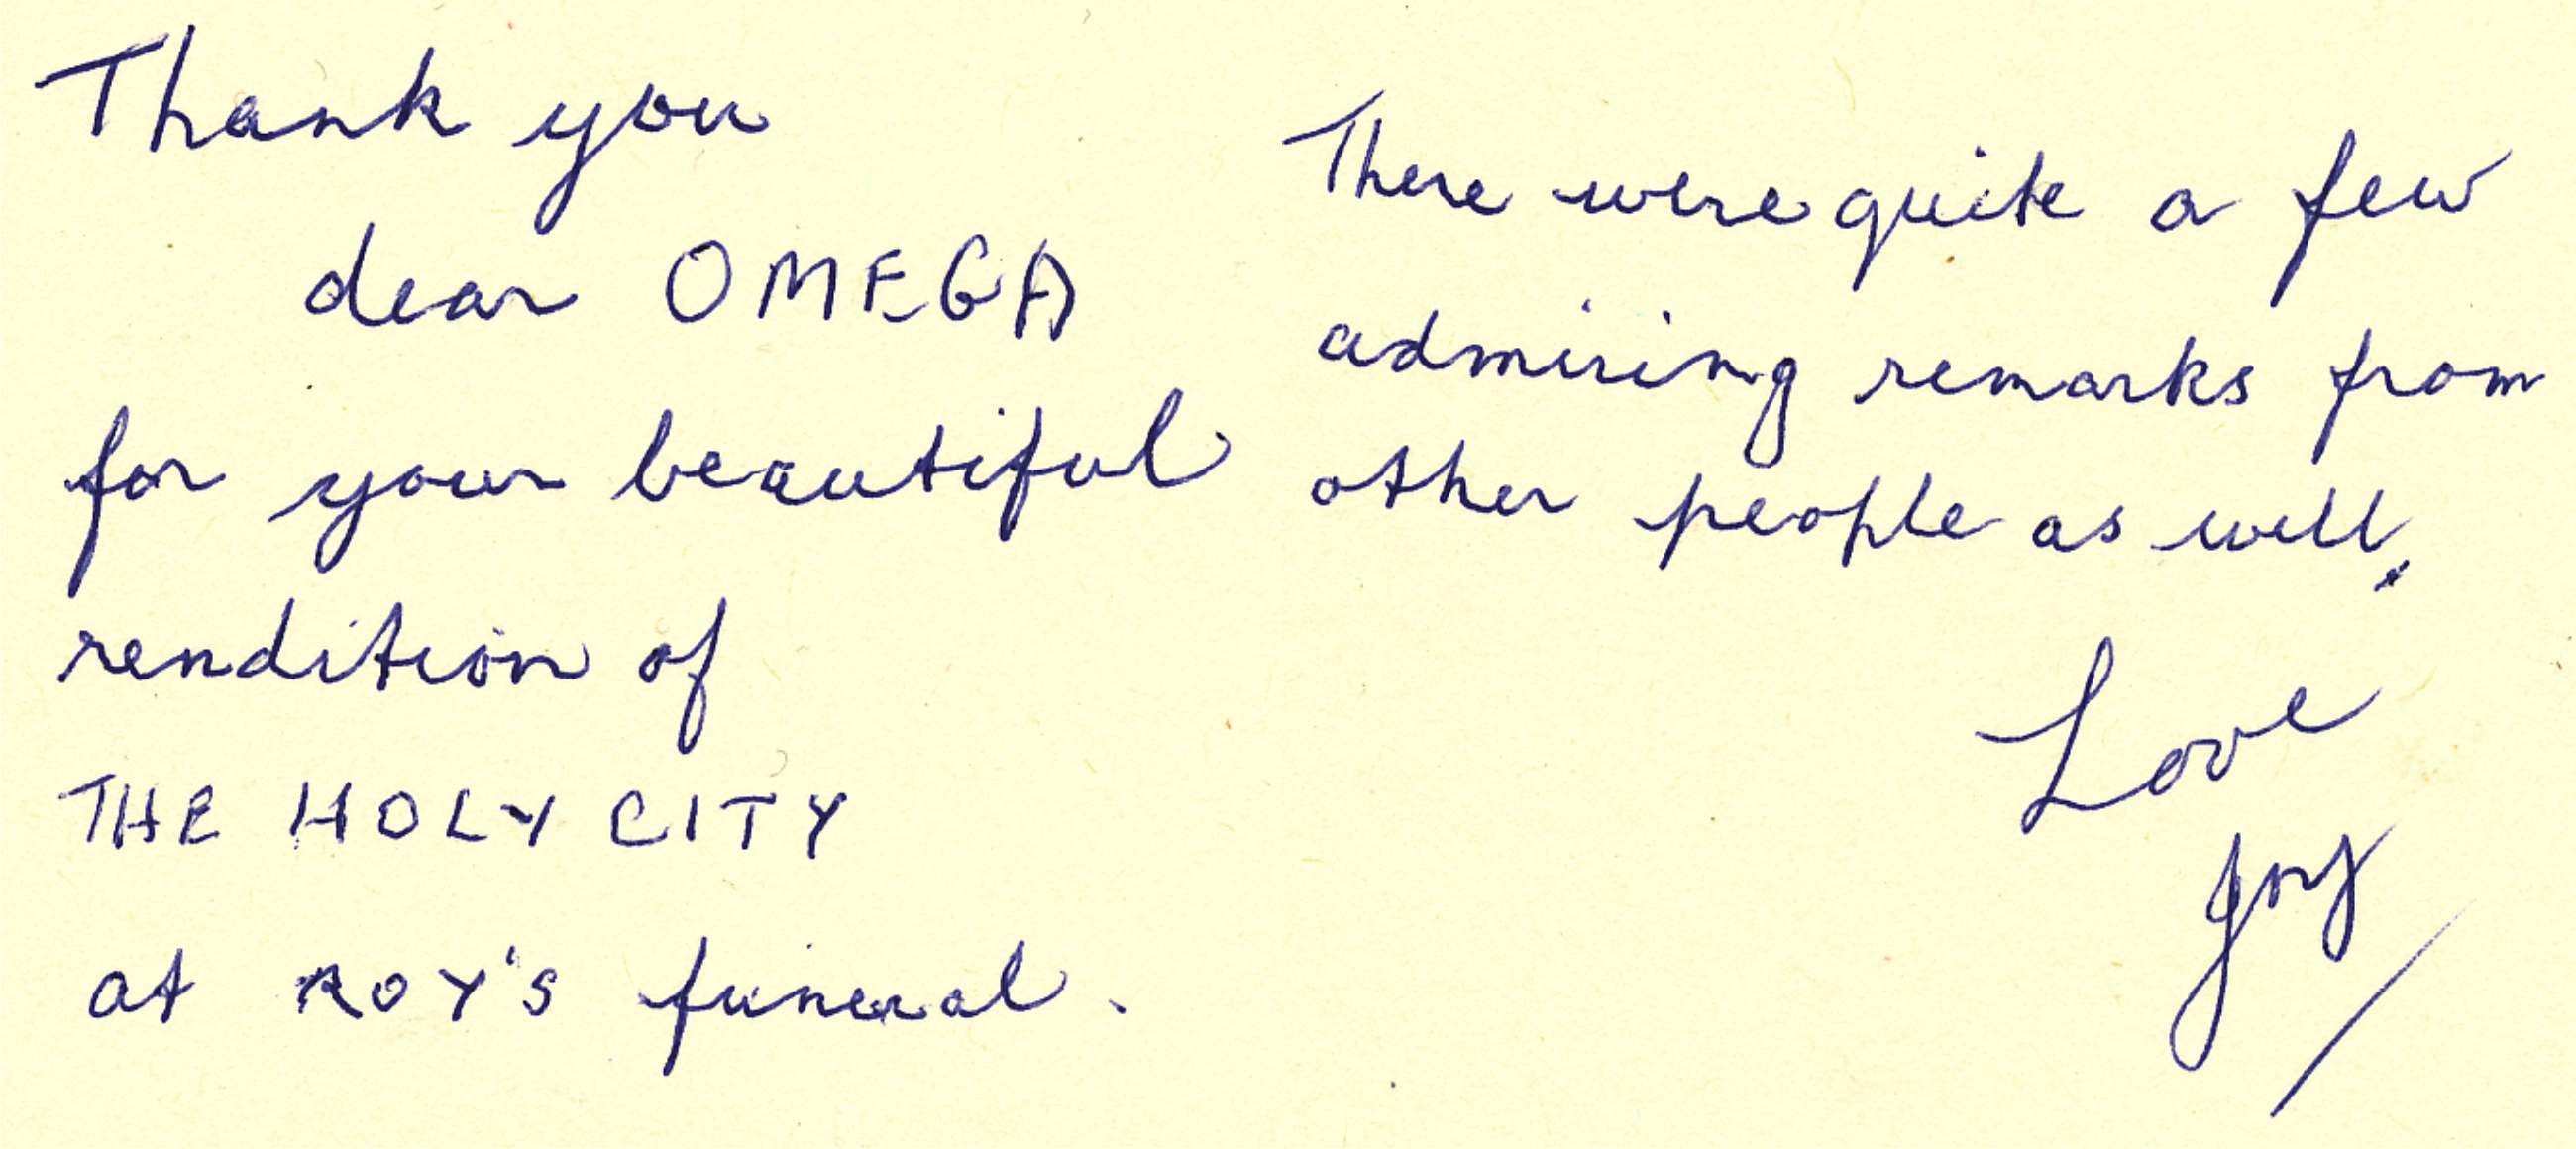 Thank you
dear OMEGA
for your beautiful
rendition of
THE HOLY CITY
at ROY'S funeral.
There were quite a few
admiring remarks from
other people as well.
Love
Joy